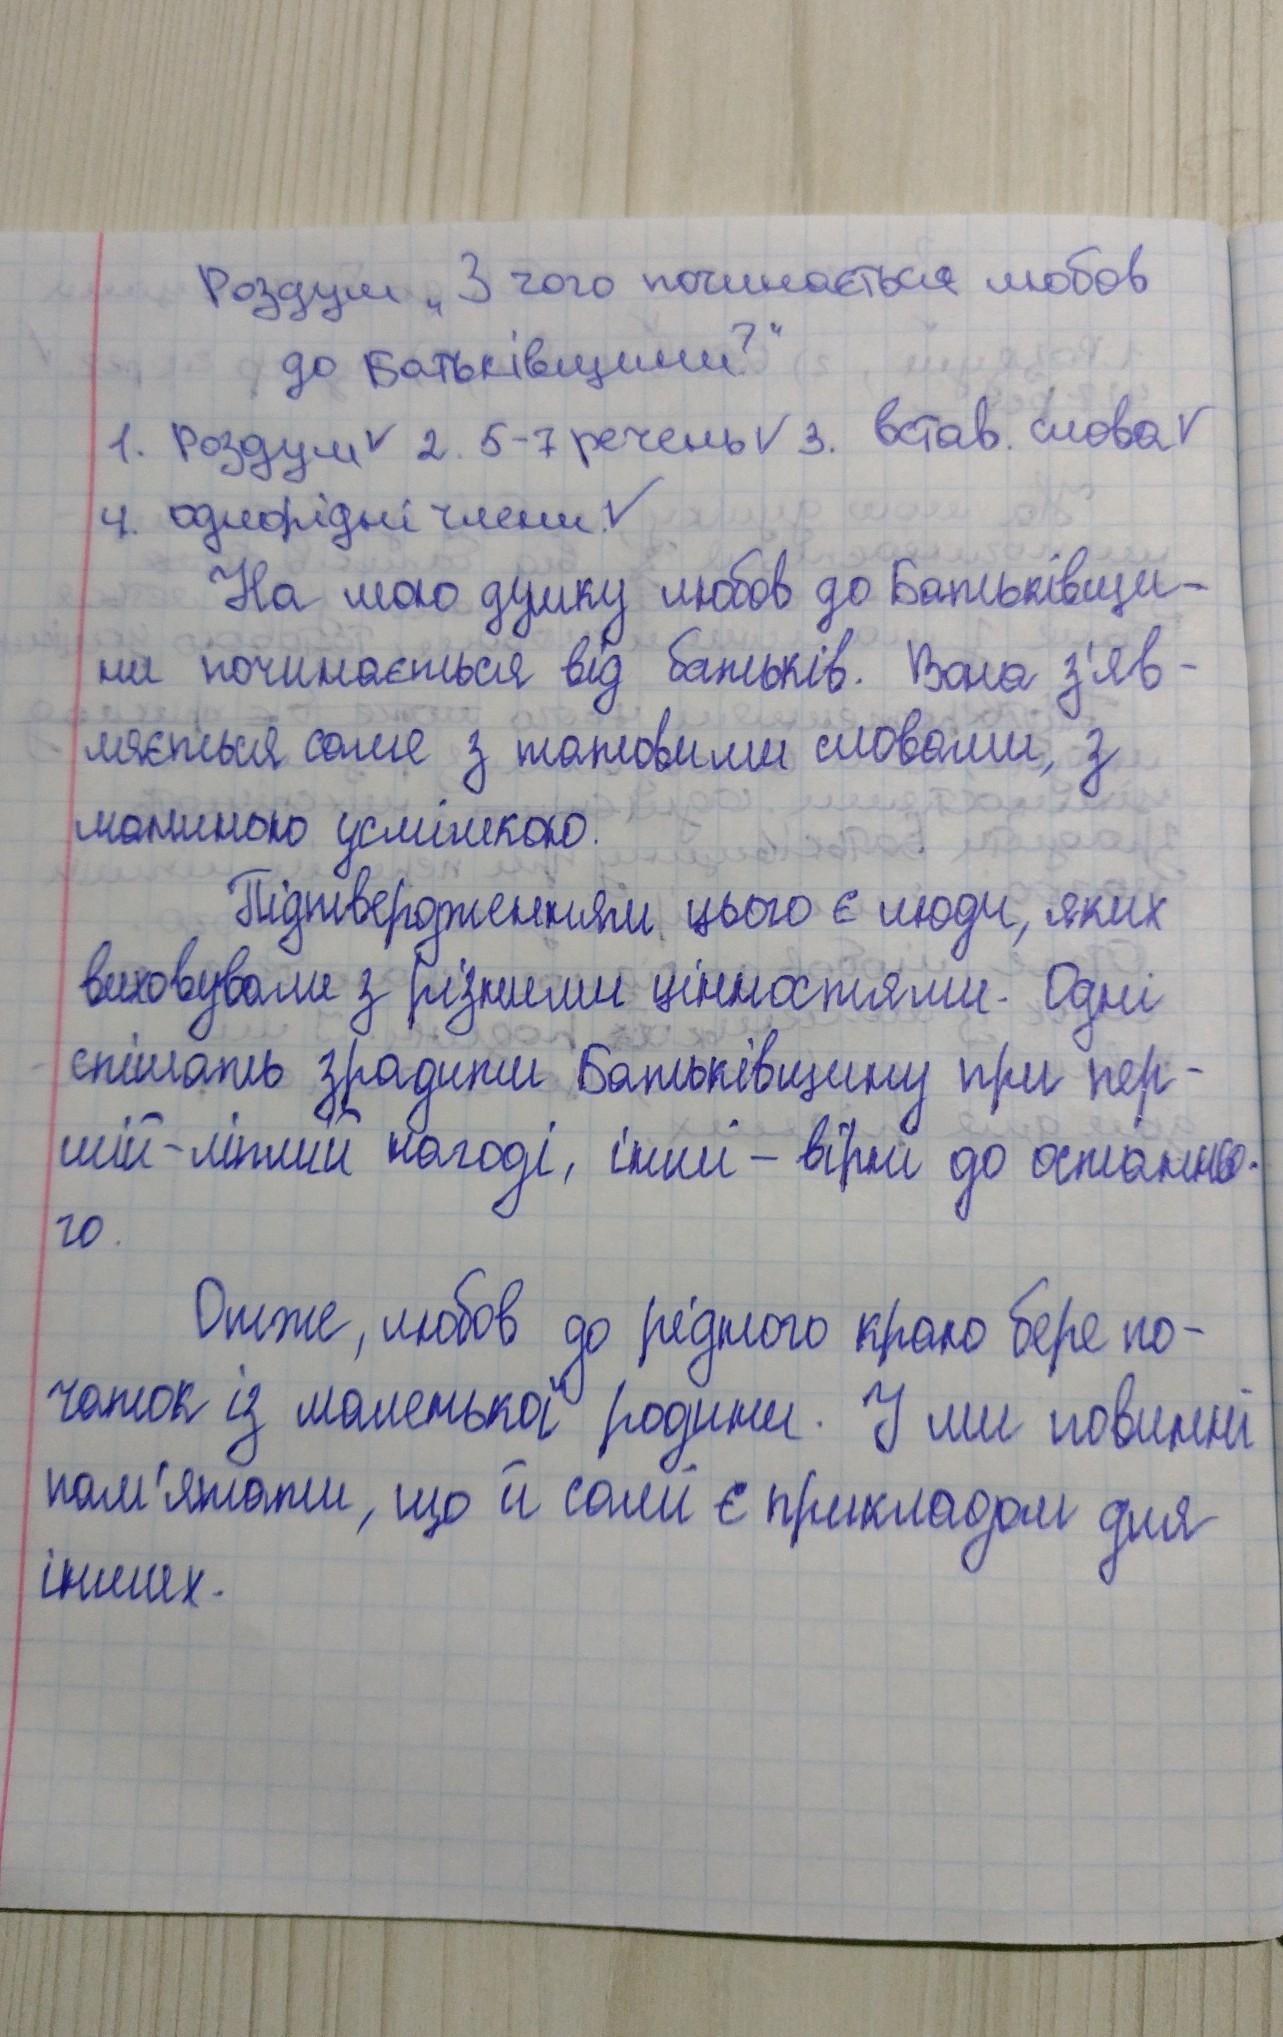 Роздум „З чого починається любов
до Батьківщини?"
1. Роздум✓ 2. 5-7 речень✓ 3. встав. слова✓
4. однорідні члени.✓
На мою думку любов до Батьківщи-
ни починається від батьків. Вона з'яв-
ляється саме з татовими словами, з
маминою усмішкою.
Підтвердженням цього є люди, яких
виховували з різними цінностями. Одні
спішать зрадити Батьківщину при пер-
шій-ліпшій нагоді, інші – вірні до останньо-
го.
Отже, любов до рідного краю бере по-
чаток із маленької родини. І ми повинні
пам'ятати, що й самі є прикладом для
інших.